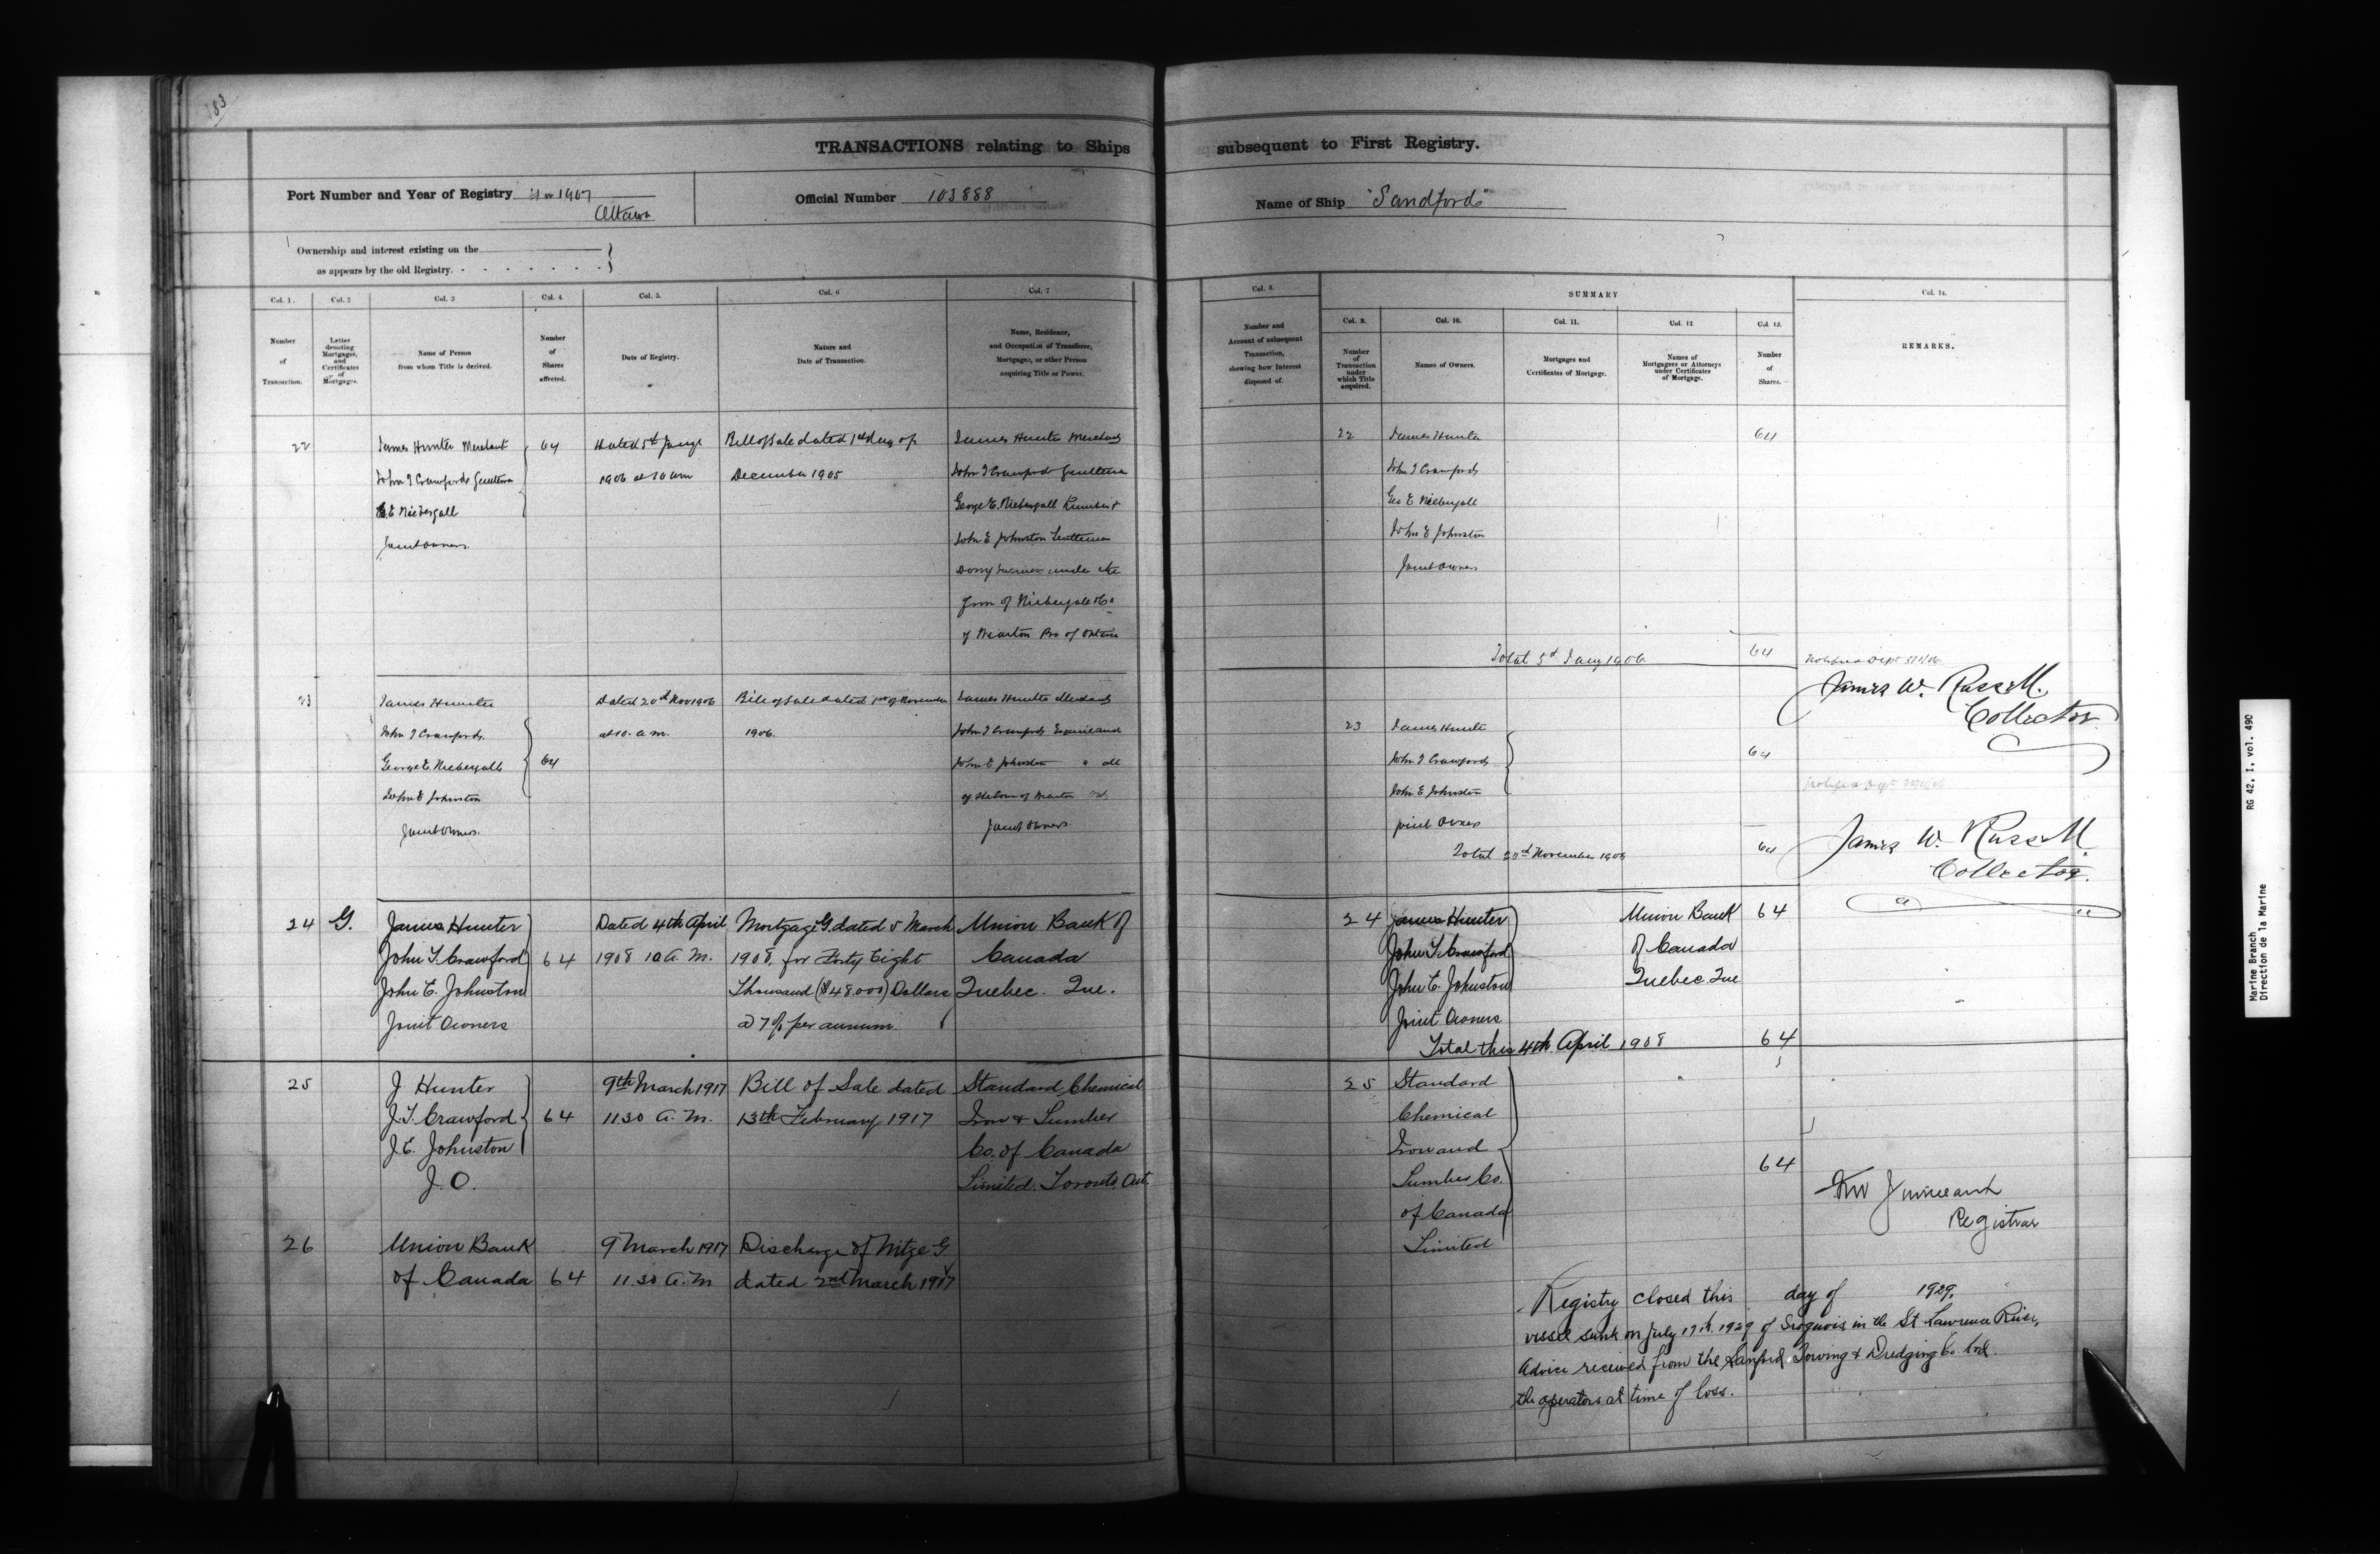 183
TRANSACTIONS relating to Ships subsequent to First Registry.
Port Number and Year of Registry 1907
Ottawa
Official Number 103888
Name of Ship "Sandford"
Ownership and interest existing on the
as appears by the old Registry.
Col. 1.
Number
of
Transaction.
Col. 2
Letter
denoting
Mortgages,
and
Certificates
of
Mortgages.
Col. 3
Name of Person
from whom Title is derived.
Col. 4.
Number
of
Shares
affected.
Col. 5.
Date of Registry.
Col. 6
Nature and
Date of Transaction.
Col. 7
Name, Residence,
and Occupation of Transferee,
Mortgagee, or other Person
acquiring Title or Power.
Col. 8.
Number and
Account of subsequent
Transaction,
showing how Interest
disposed of.
SUMMARY
Col. 9.
Number
of
Transaction
under
which Title
acquired.
Col. 10.
Names of Owners.
Col. 11.
Mortgages and
Certificates of Mortgage.
Col. 12
Names of
Mortgagees or Attorneys
under Certificates
of Mortgage.
Col. 13.
Number
of
Shares.
Col. 14.
REMARKS.
22
James Hunter Merchant
John J Crawford Gentleman
G.E Niebergall
Joint Owners.
64
Dated 5th Jany
1906 at 10 am
Bill of Sale dated 1st day of
December 1905
James Hunter Merchant
John J Crawford Gentleman
George E. Niebergall
John E Johnston Gentleman
under the
firm of Niebergall & Co
of Wiarton Pro of Ontario
22
James Hunter
John J Crawford
Geo E Niebergall
John E Johnston
Joint Owners
64
Total 5th Jany 1906 64
Notified Dept 5/1/06
James W. Russell.
Collector
23
James Hunter
John J Crawford
George E Niebergall
John E Johnston
Joint Owners.
64
Dated 20th Nov 1906
at 10. a.m.
Bill of Sale dated 1st of November
1906.
James Hunter Merchant
John J Crawford
John E Johnston " all
of the Town of Wiarton
Joint Owners.
23
James Hunter
John J Crawford
John E Johnston
Joint Owners
64
Total 20th November 1906 64
James W. Russell
Collector.
24
G.
James Hunter
John J. Crawford
John E. Johnston
Joint Owners
64
Dated 4th April
1908 10 A. M.
Mortgage G. dated 5 March
1908, for Forty Eight
Thousand ($48.000) Dollars
@ 7% per annum.
Union Bank of
Canada
Quebec. Que.
24
James Hunter
John J. Crawford
John E. Johnston
Joint Owners
Union Bank
of Canada
Quebec. Que
64
Total this 4th April 1908 64
25
J Hunter
J. J. Crawford
J. E. Johnston
J. O.
64
9th March 1917
11.30 A. M.
Bill of Sale dated
13th February 1917
Standard Chemical
Iron & Lumber
Co. of Canada
Limited. Toronto, Ont.
25
Standard
Chemical
Iron and
Lumber Co.
of Canada
Limited
64
Registrar
26
Union Bank
of Canada
64
9 March 1917
11.30 A. M
Discharge of Mtge G
dated 2nd March 1917
Registry closed this day of 1929.
vessel sunk on July 17th. 1929 of Iroquois in the St Lawrence River,
Advice received from the Sanford Towing & Dredging Co. Ltd.
the operators at time of loss.
Marine Branch RG 42, I, vol. 490
Direction de la Marine